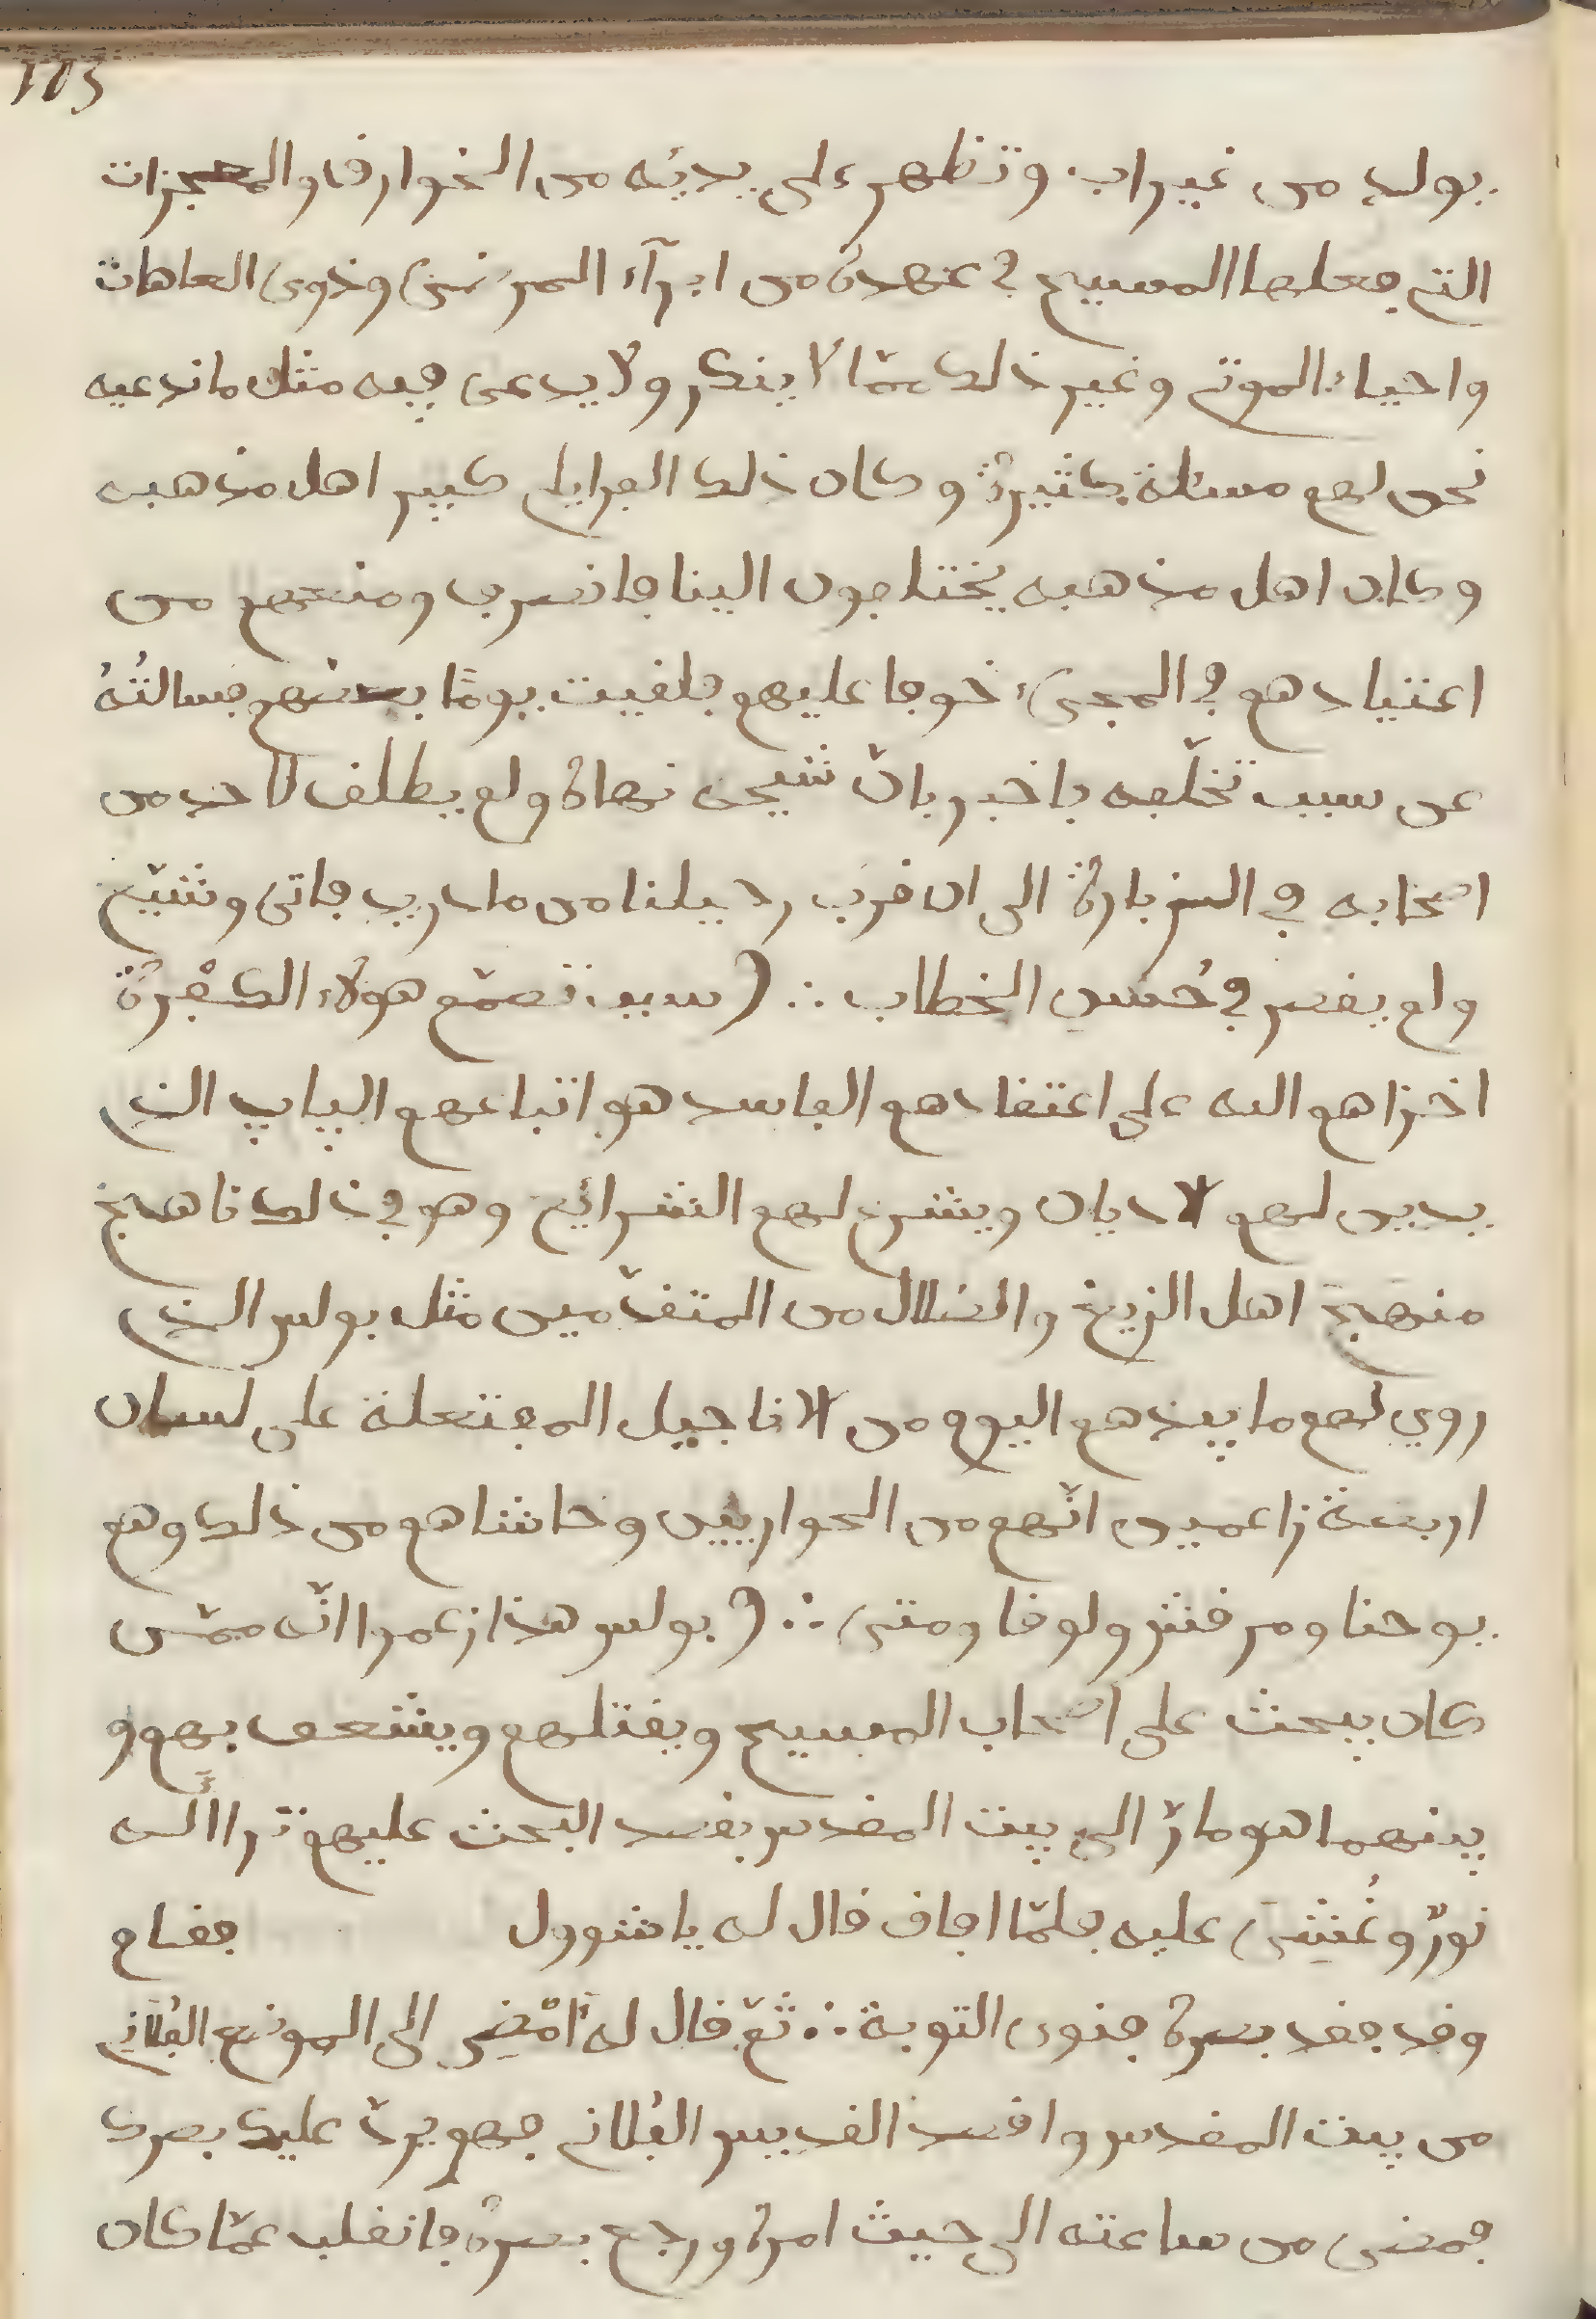 103
يولد من غير اب وتظهر على يديه من الخوارق والمعجزات
التي فعلها المسيح في عهده من ابرآء المرضى وذوى العاهات
واحياء الموتى وغير ذلك ممّا لا ينكر ولا يدعى فيه مثل ما ندعيه
نحن لهم مسئلة كثيرة وكان ذلك الفرايلي كبير اهل مذهبه
وكان اهل مذهبه يختلفون الينا فانصرف ومنعهم من
اعتيادهم في المجىء خوفا عليهم فلقيت يومًا بعضهم فسالتُهُ
عن سبب تخلّفه فاخبر بانّ شيخه نهاه ولم يطلق لاحد من
اصحابه في الزيارة الى ان قرب رحيلنا من مادريد فاتى وشيّع
ولم يقصر في حُسن الخطاب ∴ (سبب تصمّم هولاء الكفرة
اخزاهم الله على اعتقادهم الفاسد هو اتباعهم الپاپ الذي
يدين لهم الاديان ويشرع لهم الشرائع وهو في ذلك ناهج
منهج اهل الزيغ والضلال من المتقدّمين مثل بولس الذي
روي لهم ما بيدهم اليوم من الاناجيل المفتعلة على لسان
اربعة زاعمين انّهم من الحواريين وحاشاهم من ذلك وهم
يوحنا ومرقش ولوقا ومتى ∴ (بولس هذا زعموا انّه ممّن
كان يبحث على اصحاب المسيح ويقتلهم ويشعف بهم و
بينهما هو مارّ الى بيت المقدس بقصد البحث عليهم ترااَله
نورٌ وغُشِيَ عليه فلمّا افاق قال له يا شوول فقام
وقد فقد بصره فنوى التوبة ∴ ثمّ قال له اَمْضِ الى الموضع الفُلاني
من بيت المقدس واقصد القديس الفُلاني فهو يردّ عليك بصرك
فمضى من ساعته الى حيث امره ورجع بصره فانقلب عمّا كان